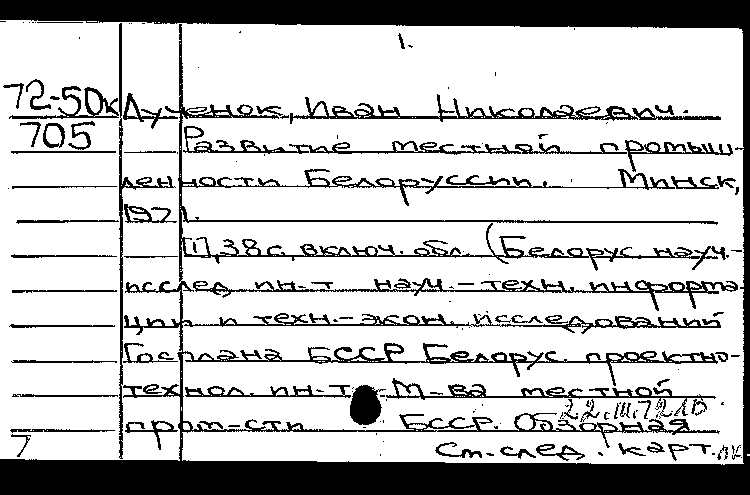 1.
72-50к Лученок, Иван Николаевич.
705 Развитие местной промыш-
ленности Белоруссии. Минск,
1971.
[1], 38 с., включ. обл. (Белорус. науч.-
исслед ин-т науч.-техн. информа-
ции и техн.-экон. исследований
Госплана БССР Белорус. проектно-
технол. ин-т М-ва местной
22.III.72
пром-сти БССР. Обзорная
7 См. след. карт.